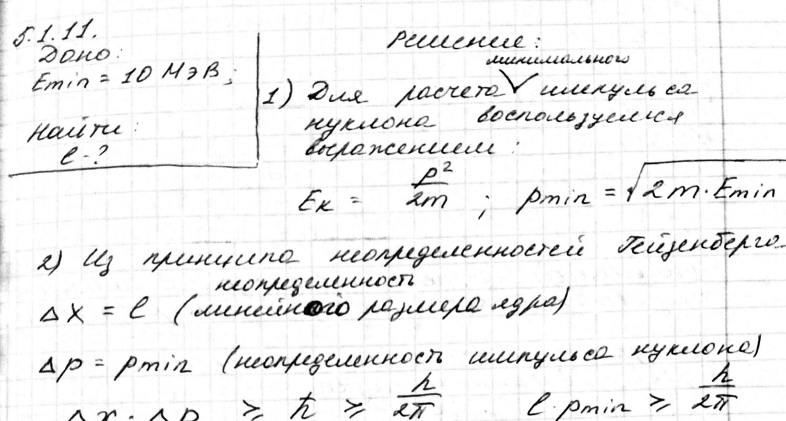 5.1.11.
Дано:
Emin = 10 МэВ;
Найти:
l-?
Решение:
минимального
1) Для расчета импульса
нуклона воспользуемся
выражением:
Eк = p²/2m ; pmin = √2m·Emin
2) Из принципа неопределенностей Гейзенберга
неопределенность
Δx = l (линейного размера ядра)
Δp = pmin (неопределенность импульса нуклона)
Δx·Δp ≥ ħ ≥ h/2π l·pmin ≥ h/2π